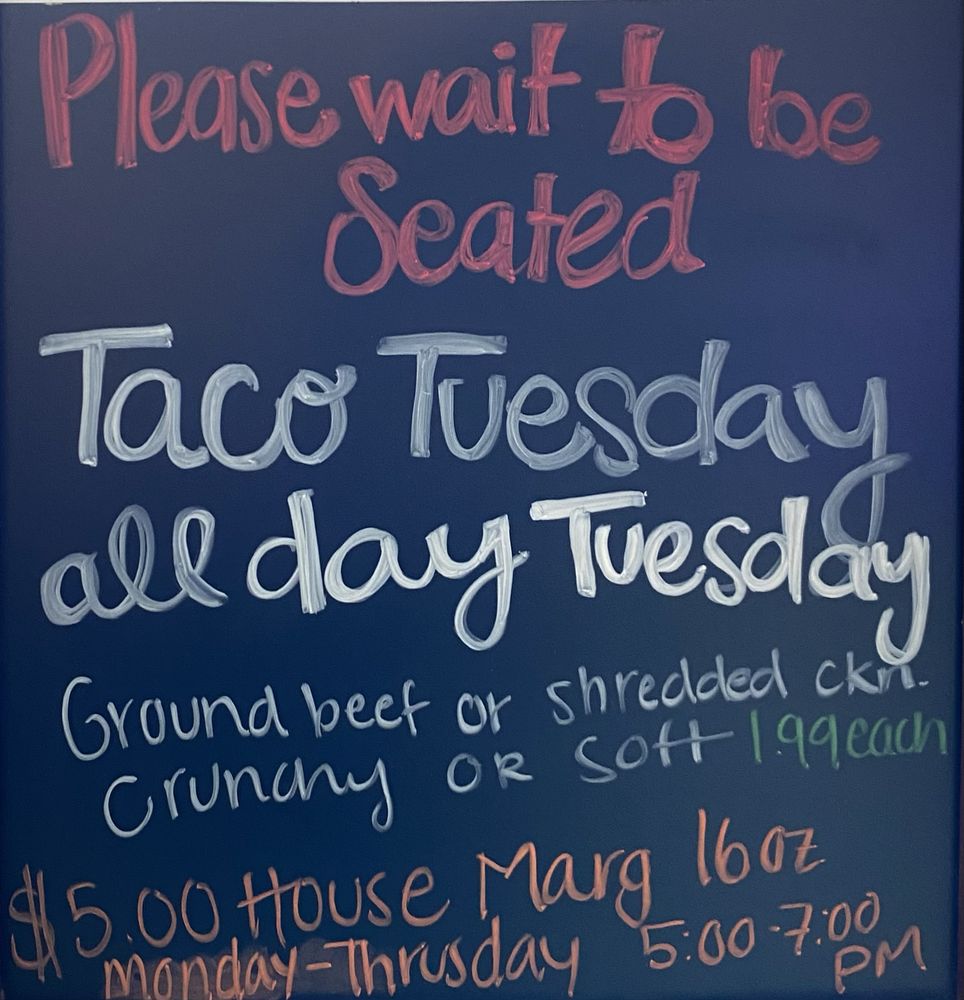 Please wait to be
Seated
Taco Tuesday
all day Tuesday
Ground beef or shredded ckn.
Crunchy OR Soft 1.99 each
$5.00 House Marg 16oz
Monday-Thrusday 5:00-7:00
PM